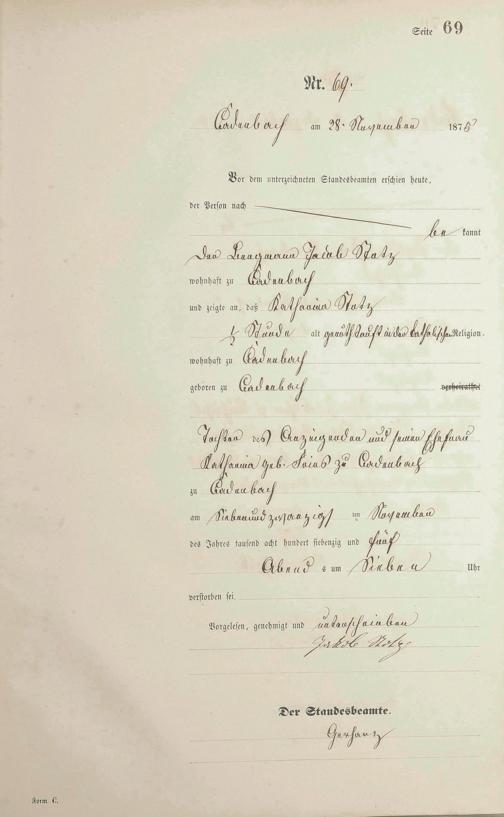 Seite 69
Nr. 69.
Cadenbach am 28. November 1875
Vor dem unterzeichneten Standesbeamten erschien heute,
der Person nach
be kannt
den Bergmann Jacob Stotz
wohnhaft zu Cadenbach
und zeigte an, daß Katharina Stotz
½ Stunde alt getauft in der katholischen Religion.
wohnhaft zu Cadenbach
geboren zu Cadenbach verheirathet
Tochter des Anzeigenden und seiner Ehefrau
Katharina geb. zu Cadenbach
zu Cadenbach
am Siebenundzwanzigst en November
des Jahres tausend acht hundert siebenzig und fünf
Abend s um Sieben Uhr
verstorben sei.
Vorgelesen, genehmigt und unterschrieben
Jakob Stotz
Der Standesbeamte.
Gerhartz
Form. C.